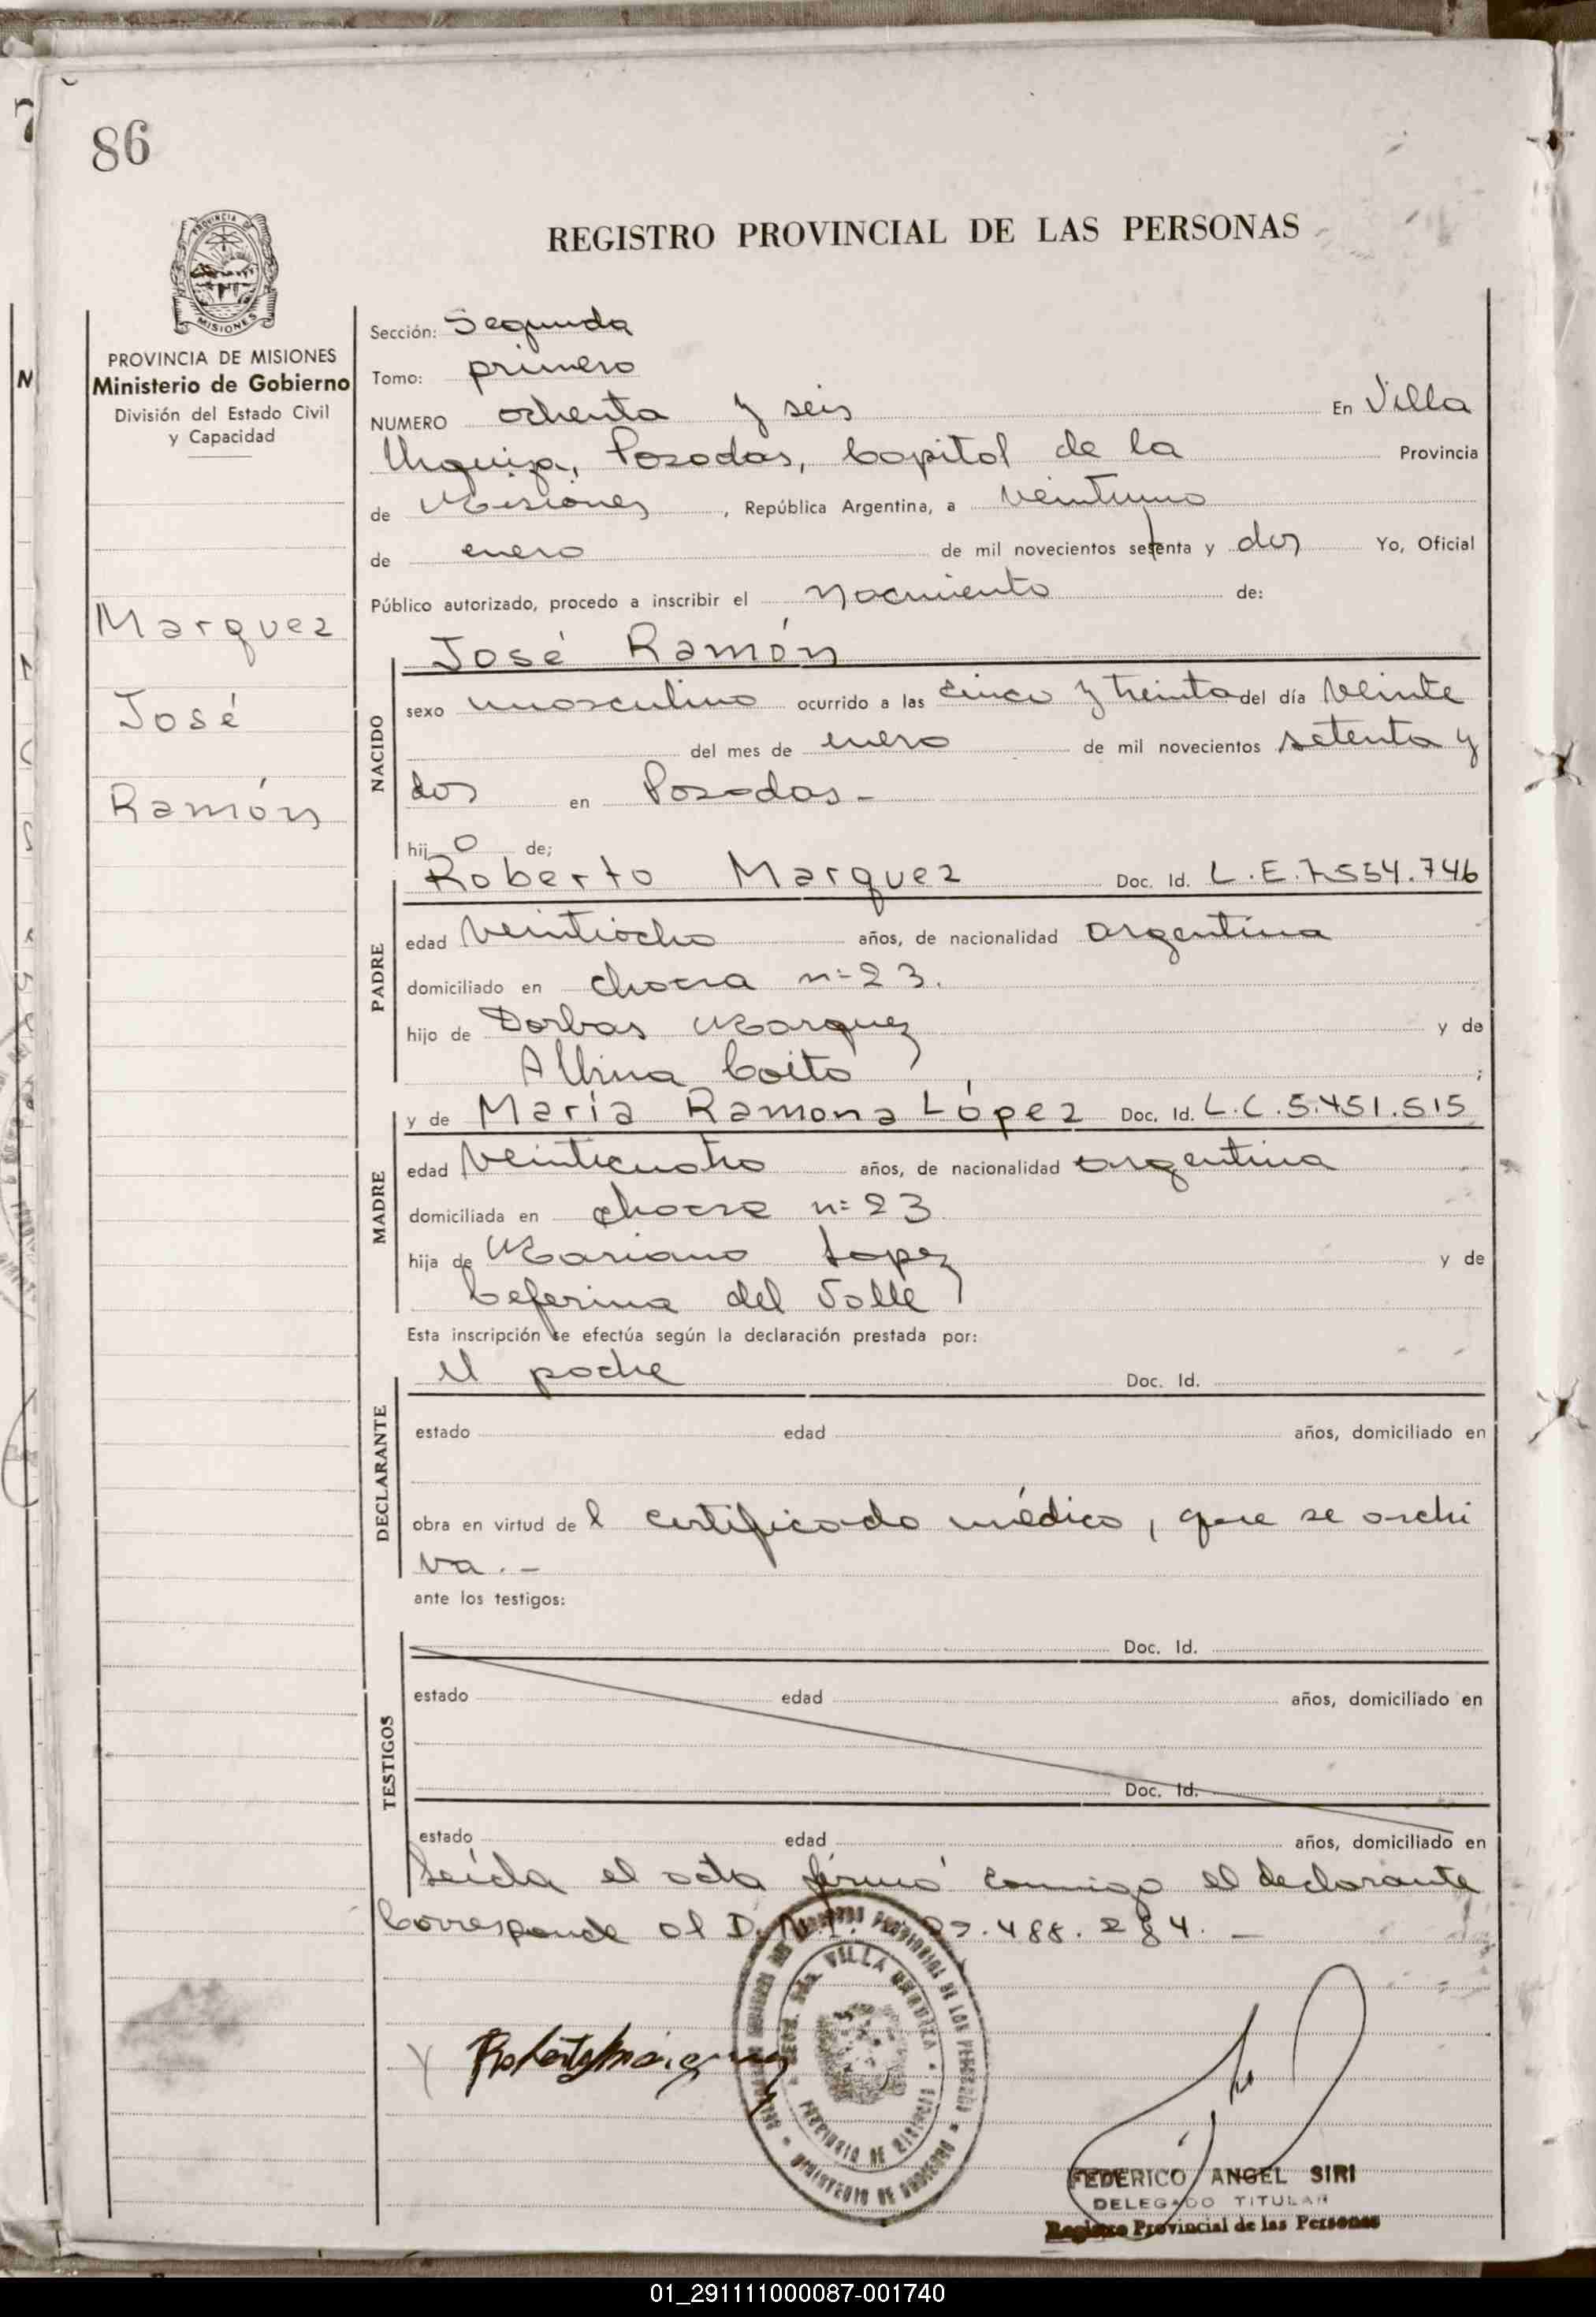 86
REGISTRO PROVINCIAL DE LAS PERSONAS
PROVINCIA DE
MISIONES
PROVINCIA DE MISIONES
Ministerio de Gobierno
División del Estado Civil
y Capacidad
Marquez
José
Ramón
Sección: Segunda
Tomo: primero
NUMERO ochenta y seis En Villa
Urquiza, Posadas, Capital de la Provincia
de Misiones, República Argentina, a veintiuno
de enero de mil novecientos setenta y dos Yo, Oficial
Público autorizado, procedo a inscribir el nacimiento de:
José Ramón
NACIDO
sexo masculino ocurrido a las cinco y treinta del día veinte
del mes de enero de mil novecientos setenta y
dos en Posadas.-
hijo de;
Roberto Marquez Doc. Id. L.E. 7.554.746
PADRE
edad veintiocho años, de nacionalidad argentina
domiciliado en chacra n=23.
hijo de Dorbas Marquez y de
Albina Coito ;
y de María Ramona López Doc. Id. L.C. 5.451.515
MADRE
edad veinticuatro años, de nacionalidad argentina
domiciliada en chacra n=23
hija de Mariano Lopez y de
Ceferina del Valle
Esta inscripción se efectúa según la declaración prestada por:
el padre Doc. Id.
DECLARANTE
estado edad años, domiciliado en
obra en virtud del certificado médico, que se archi
va.-
ante los testigos:
Doc. Id.
TESTIGOS
estado edad años, domiciliado en
Doc. Id.
estado edad años, domiciliado en
Leída el acta firmó conmigo el declarante
Corresponde al D.N.I. 22.488.284.-
VILLA URQUIZA
PROVINCIA DE MISIONES
MINISTERIO DE GOBIERNO
Roberto Marquez
FEDERICO ANGEL SIRI
DELEGADO TITULAR
Registro Provincial de las Personas
01_291111000087-001740